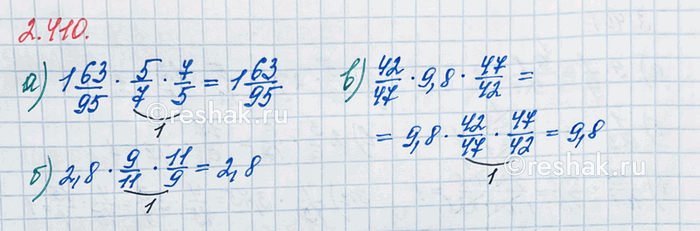 2.410.
а) 1 63/95 · 5/7 · 7/5 = 1 63/95
1
б) 2,8 · 9/11 · 11/9 = 2,8
1
в) 42/47 · 9,8 · 47/42 =
= 9,8 · 42/47 · 47/42 = 9,8
1
©reshak.ru
©reshak.ru
©reshak.ru